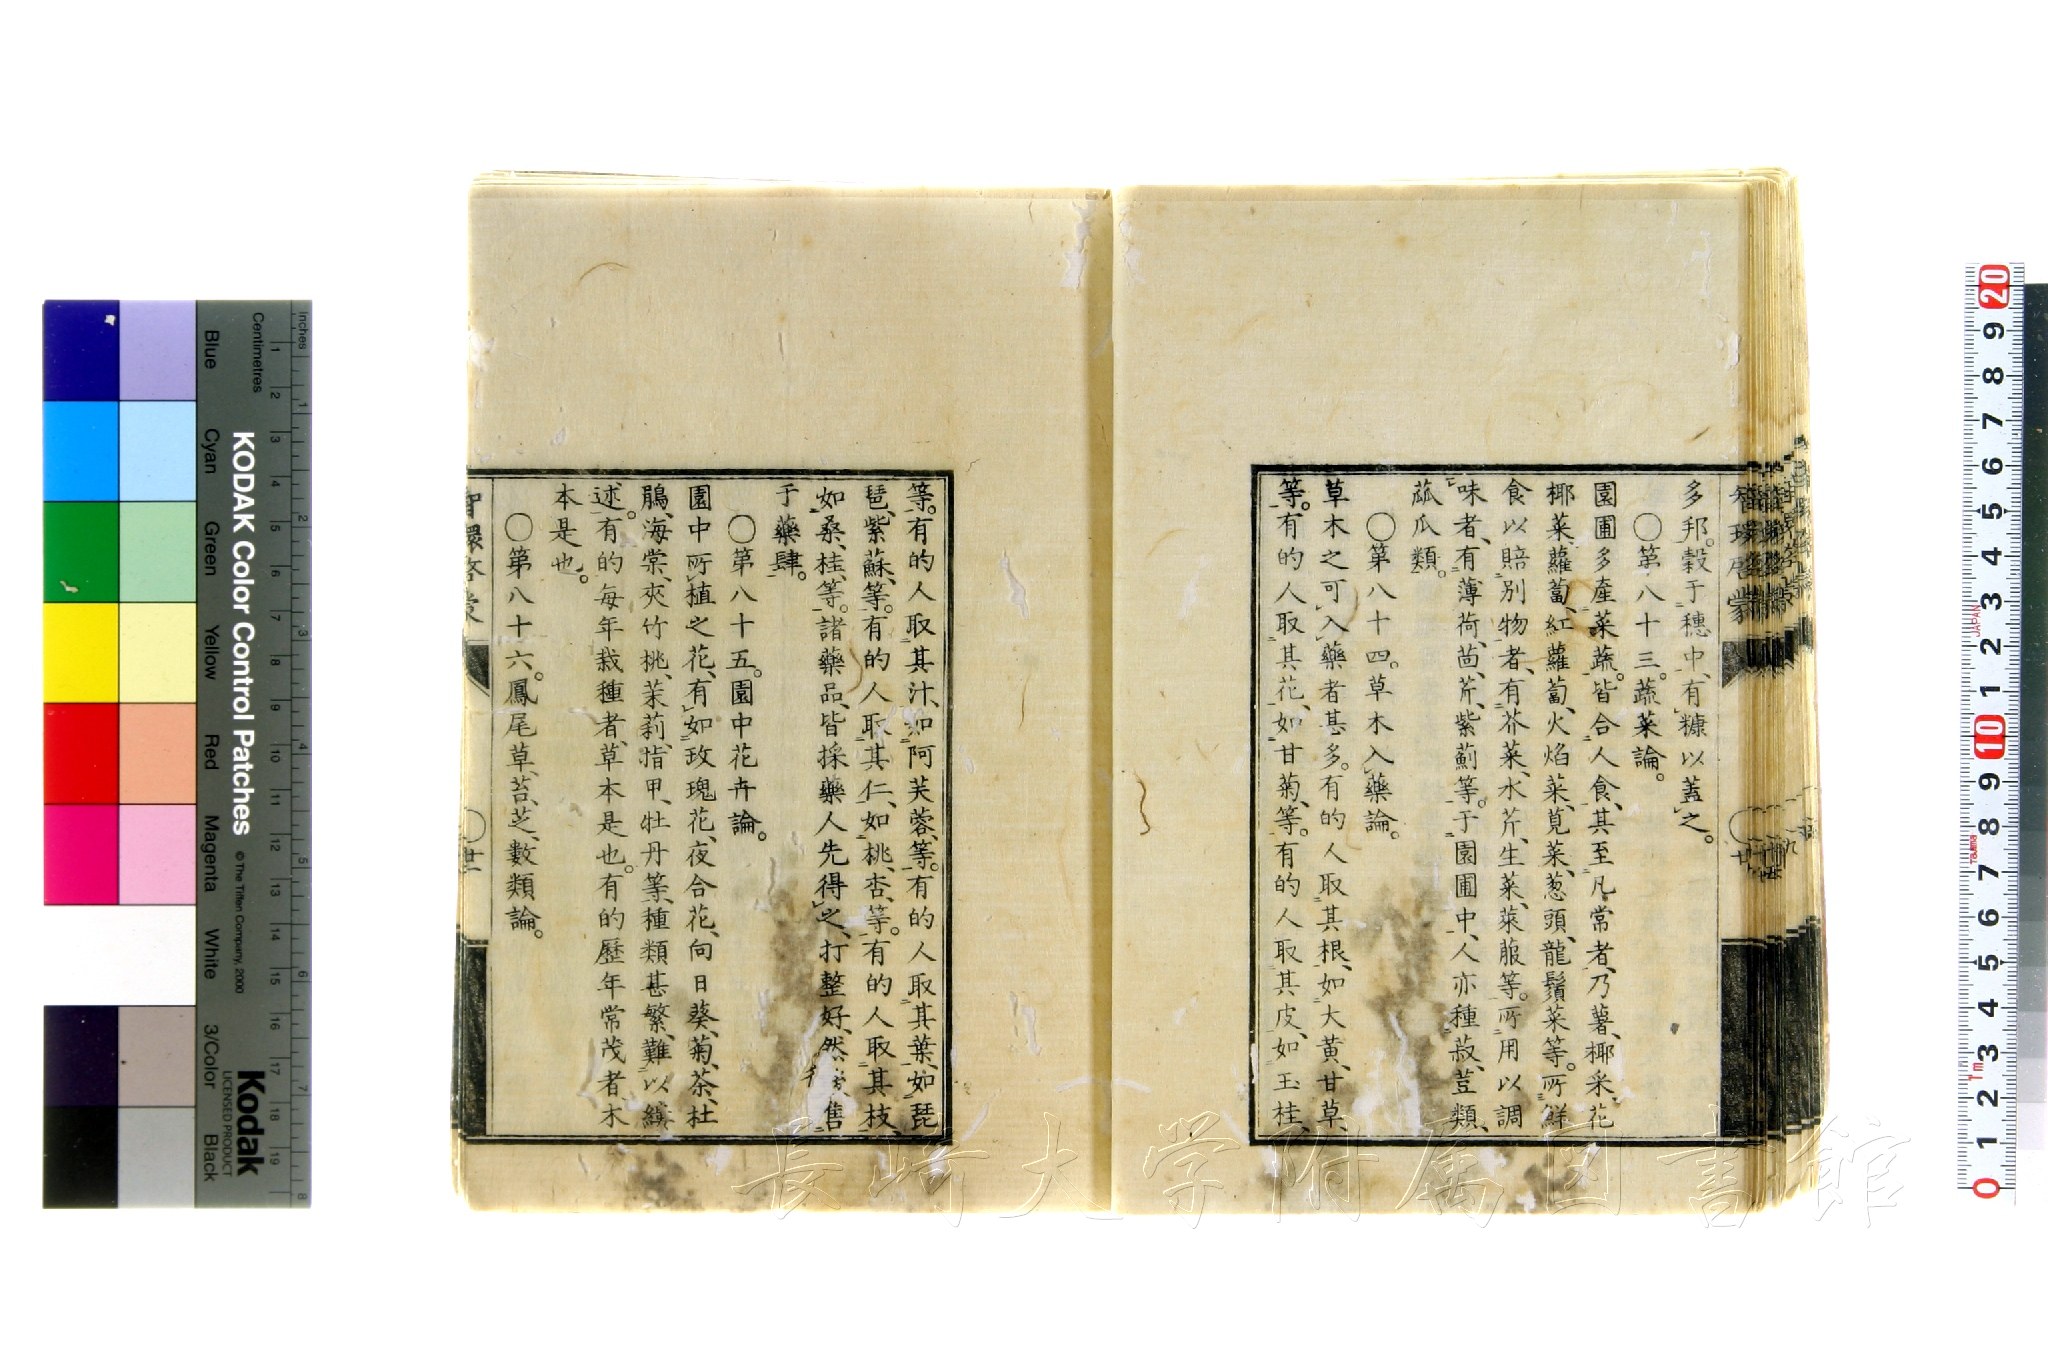 智環啓蒙
多邦。穀于穗中、有糠以蓋之。
〇第八十三。蔬菜論。
園圃多產菜蔬。皆合人食、其至凡常者、乃薯、椰采、花
椰菜、蘿蔔、紅蘿蔔、火焰菜、莧菜、葱頭、龍鬚菜等。所鮮
食以賠別物者、有芥菜、水芹、生菜、菜服等。所用以調
味者、有薄荷、茴芹、紫蘇等。于園圃中、人亦種菽、荳類、
蓏瓜類。
〇第八十四。草木入藥論。
草木之可入藥者甚多。有的人取其根、如大黃、甘草、
等。有的人取其花、如甘菊、等。有的人取其皮、如玉桂、
等。有的人取其汁、如阿芙蓉、等。有的人取其葉、如琵
琶、紫蘇、等。有的人取其仁、如桃、杏、等。有的人取其枝、
如桑、桂、等。諸藥品、皆採藥人先得之、打整好、然後售
于藥肆。
〇第八十五。園中花卉論。
園中所植之花、有如玫瑰花、夜合花、向日葵、菊、茶、杜
鵑、海棠、夾竹桃、茉莉、指甲、牡丹等、種類甚繁、難以縯
述。有的每年栽種者、草本是也。有的歷年常茂者、木
本是也。
〇第八十六。鳳尾草、苔、芝、數類論。
智環啓蒙
〇廿
長崎大学附属図書館
KODAK Color Control Patches
© The Tiffen Company, 2000
Kodak
LICENSED PRODUCT
Inches
Centimetres
Blue
Cyan
Green
Yellow
Red
Magenta
White
3/Color
Black
JAPAN
Tajima
1m